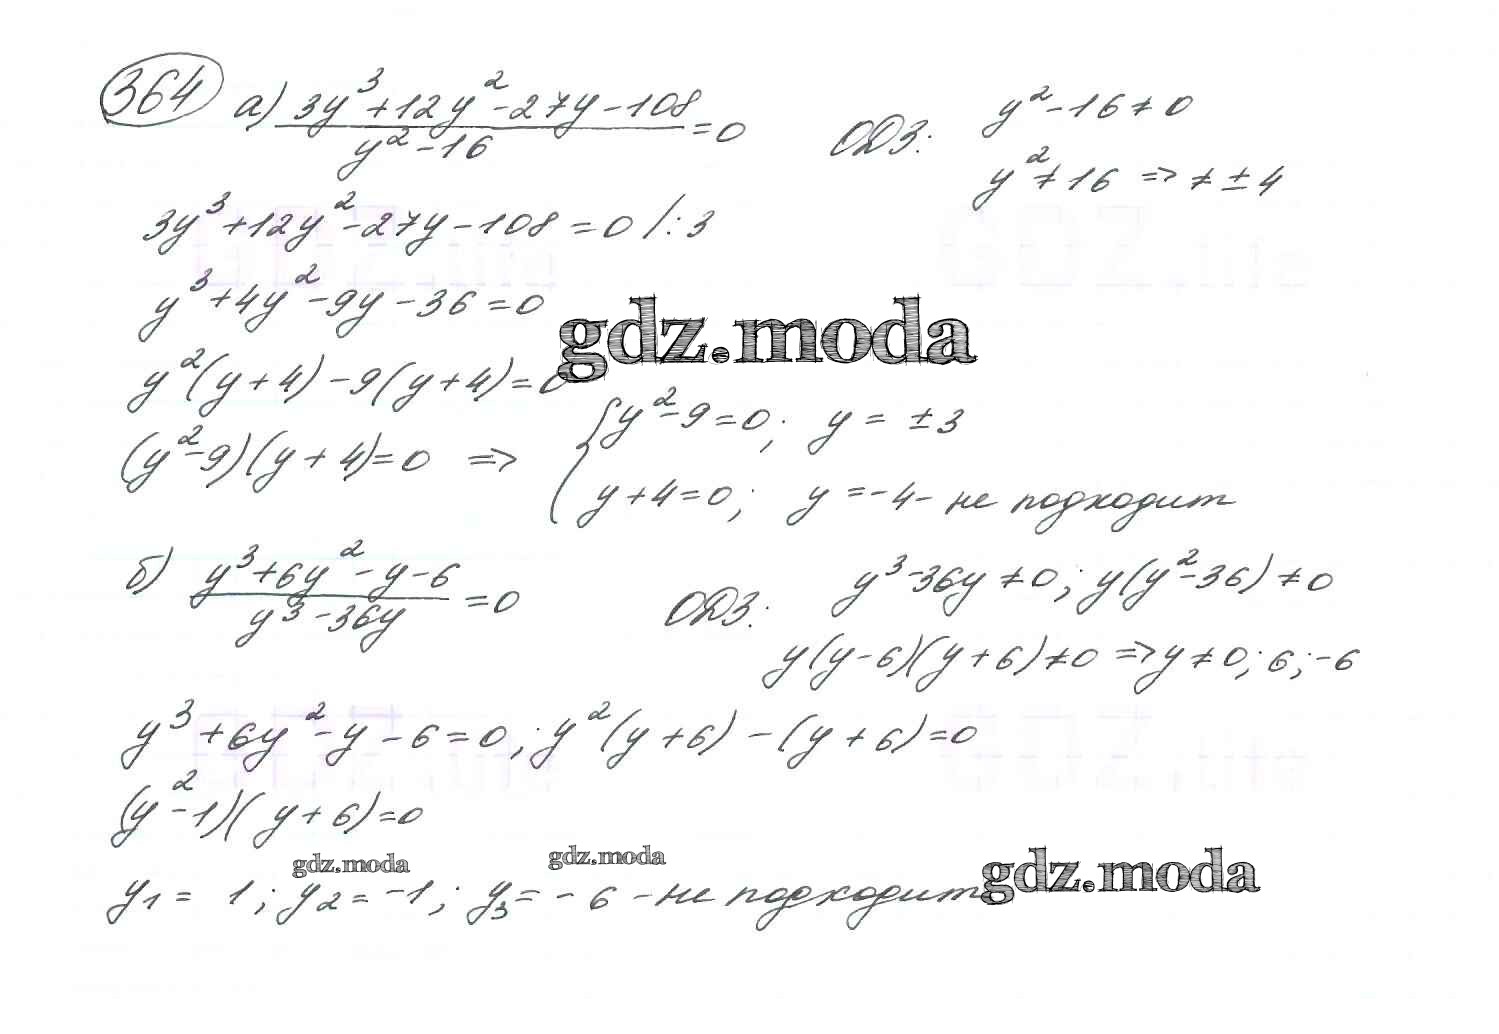 364 а) (3y³+12y²-27y-108)/(y²-16) =0 ОДЗ: y²-16≠0
y²≠16 => ≠ ±4
3y³+12y²-27y-108=0 /:3
y³+4y²-9y-36=0
gdz.moda
y²(y+4)-9(y+4)=0
(y²-9)(y+4)=0 => { y²-9=0; y= ±3
y+4=0; y=-4- не подходит
б) (y³+6y²-y-6)/(y³-36y) =0 ОДЗ: y³-36y≠0; y(y²-36)≠0
y(y-6)(y+6)≠0 => y≠0; 6; -6
y³+6y²-y-6=0; y²(y+6)-(y+6)=0
(y²-1)(y+6)=0
gdz.moda gdz.moda gdz.moda
y₁= 1; y₂= -1; y₃= -6 - не подходит
GDZ.life GDZ.life
GDZ.life GDZ.life